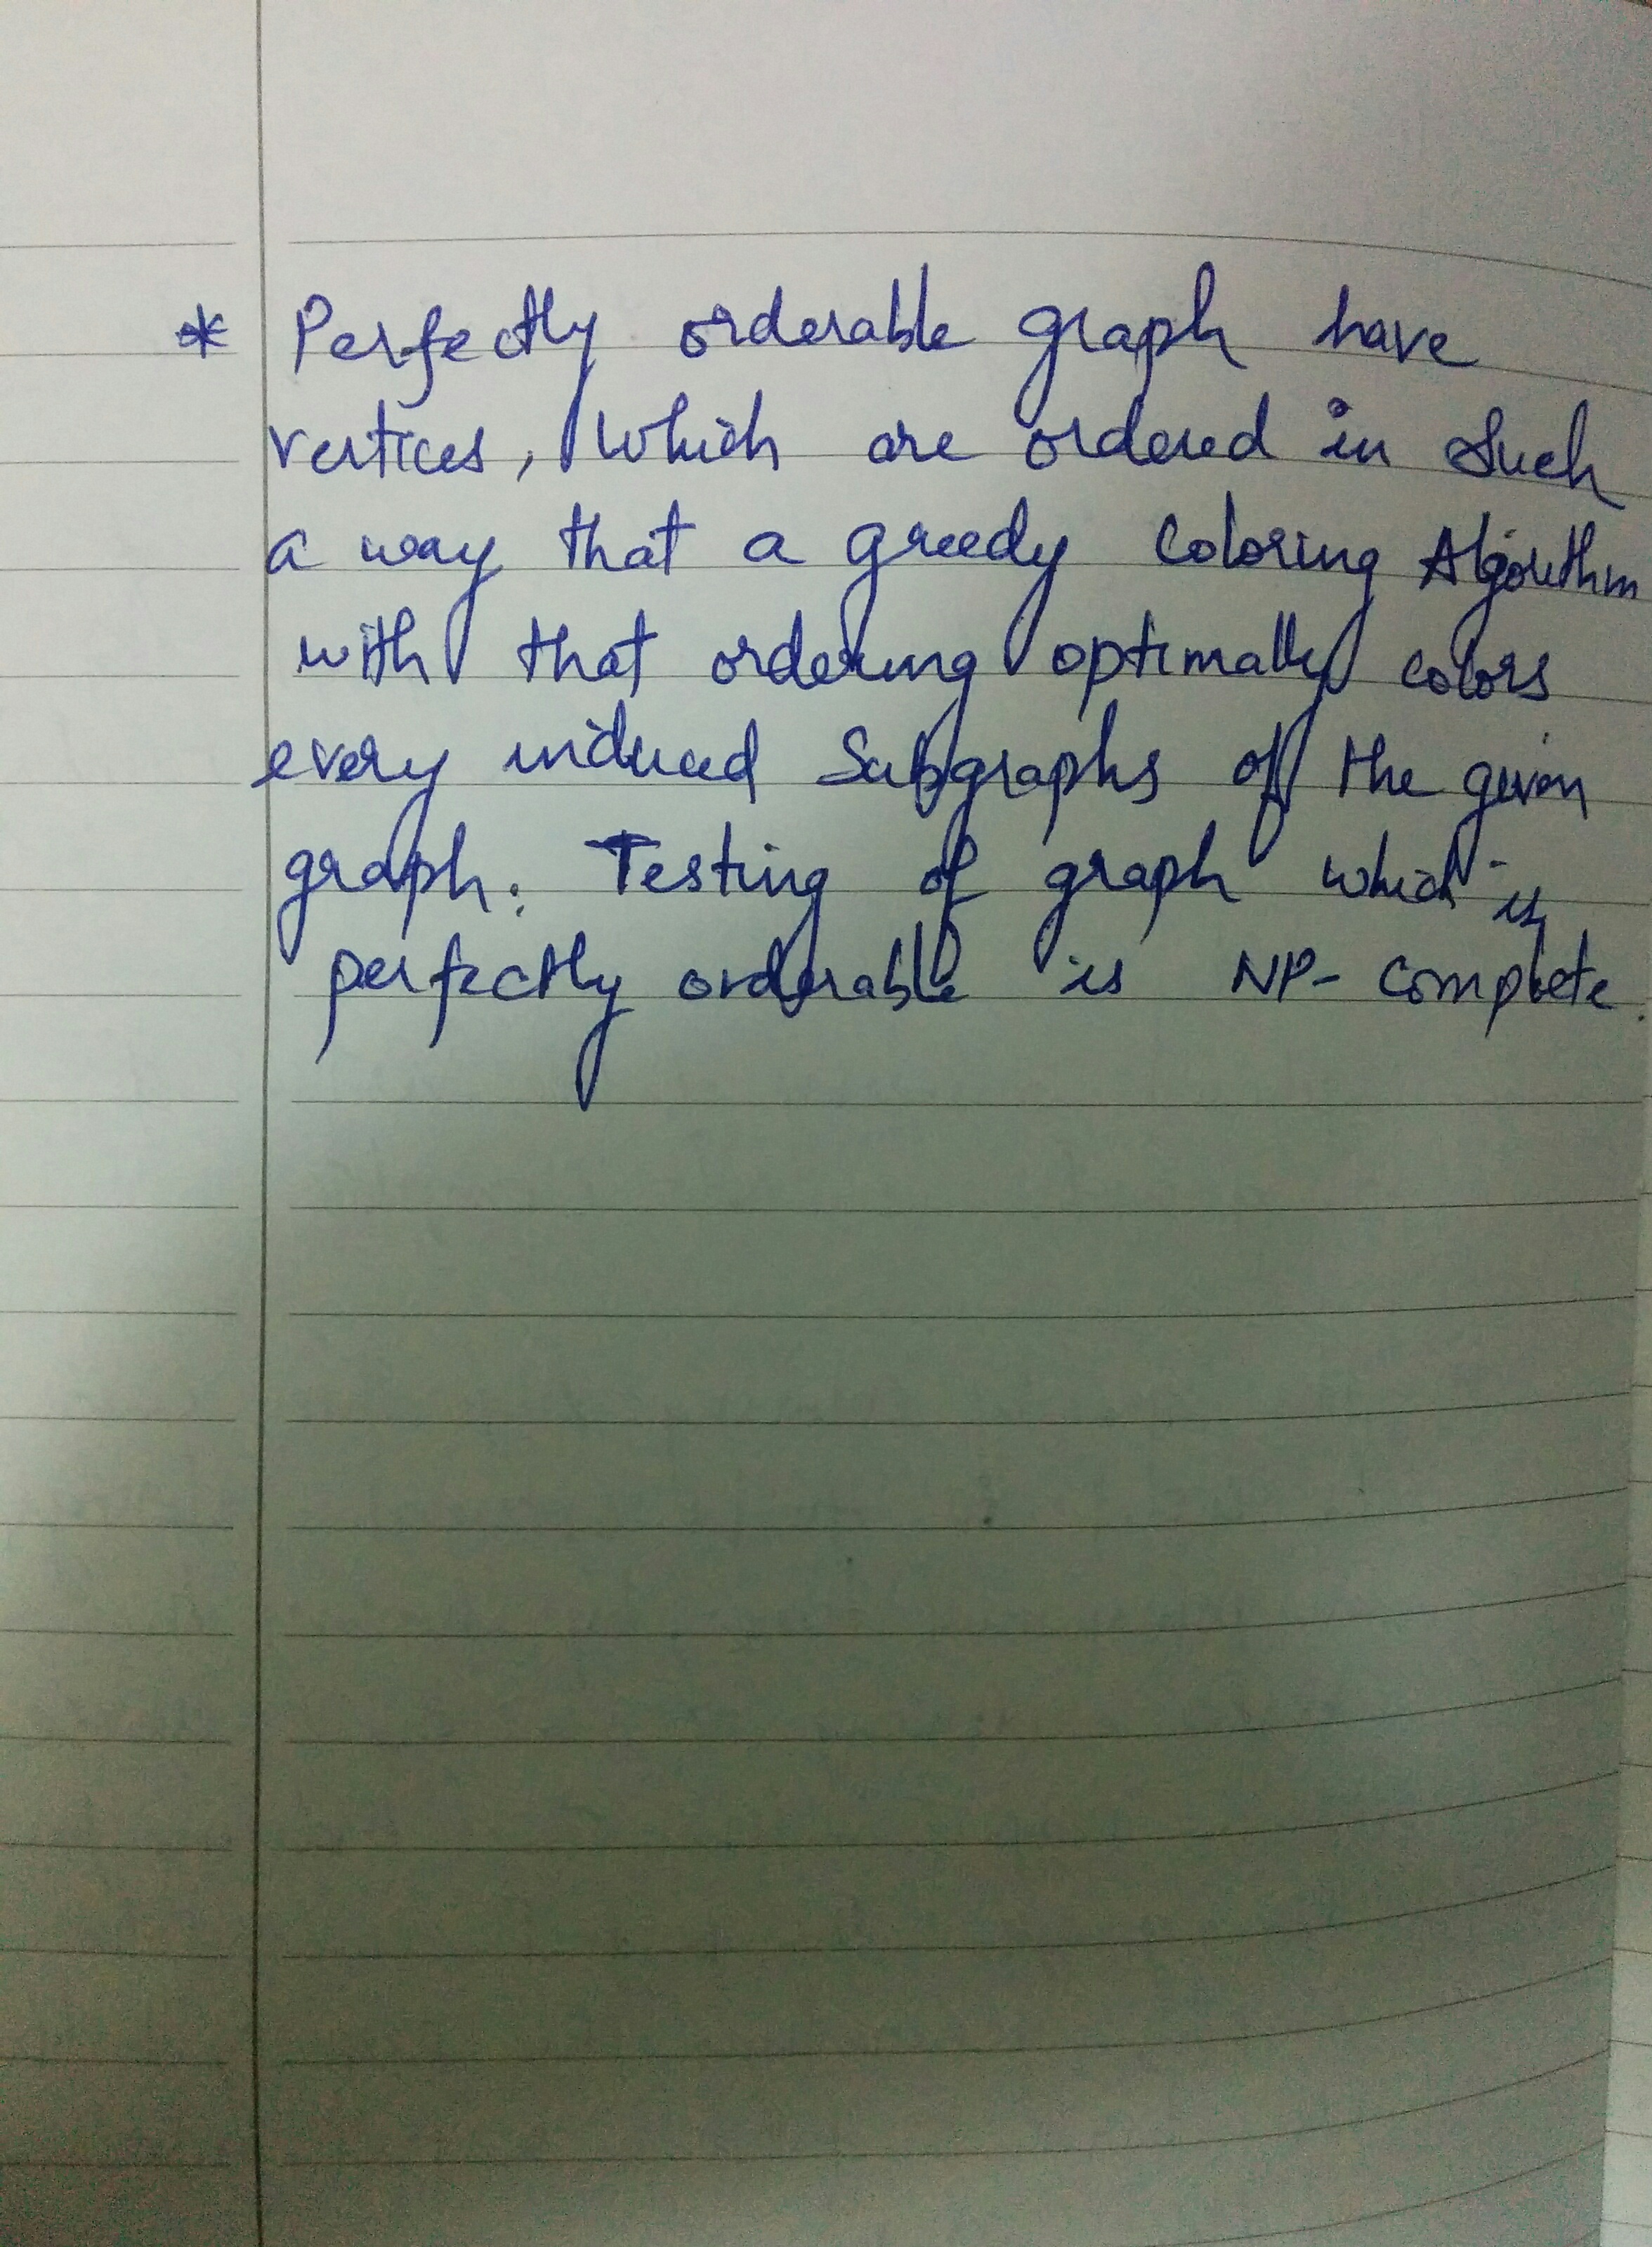 * Perfectly orderable graph have
vertices, which are ordered in such
a way that a greedy coloring Algorithm
with that ordering optimally colors
every induced Subgraphs of the given
graph. Testing of graph which is
perfectly orderable is NP-complete.